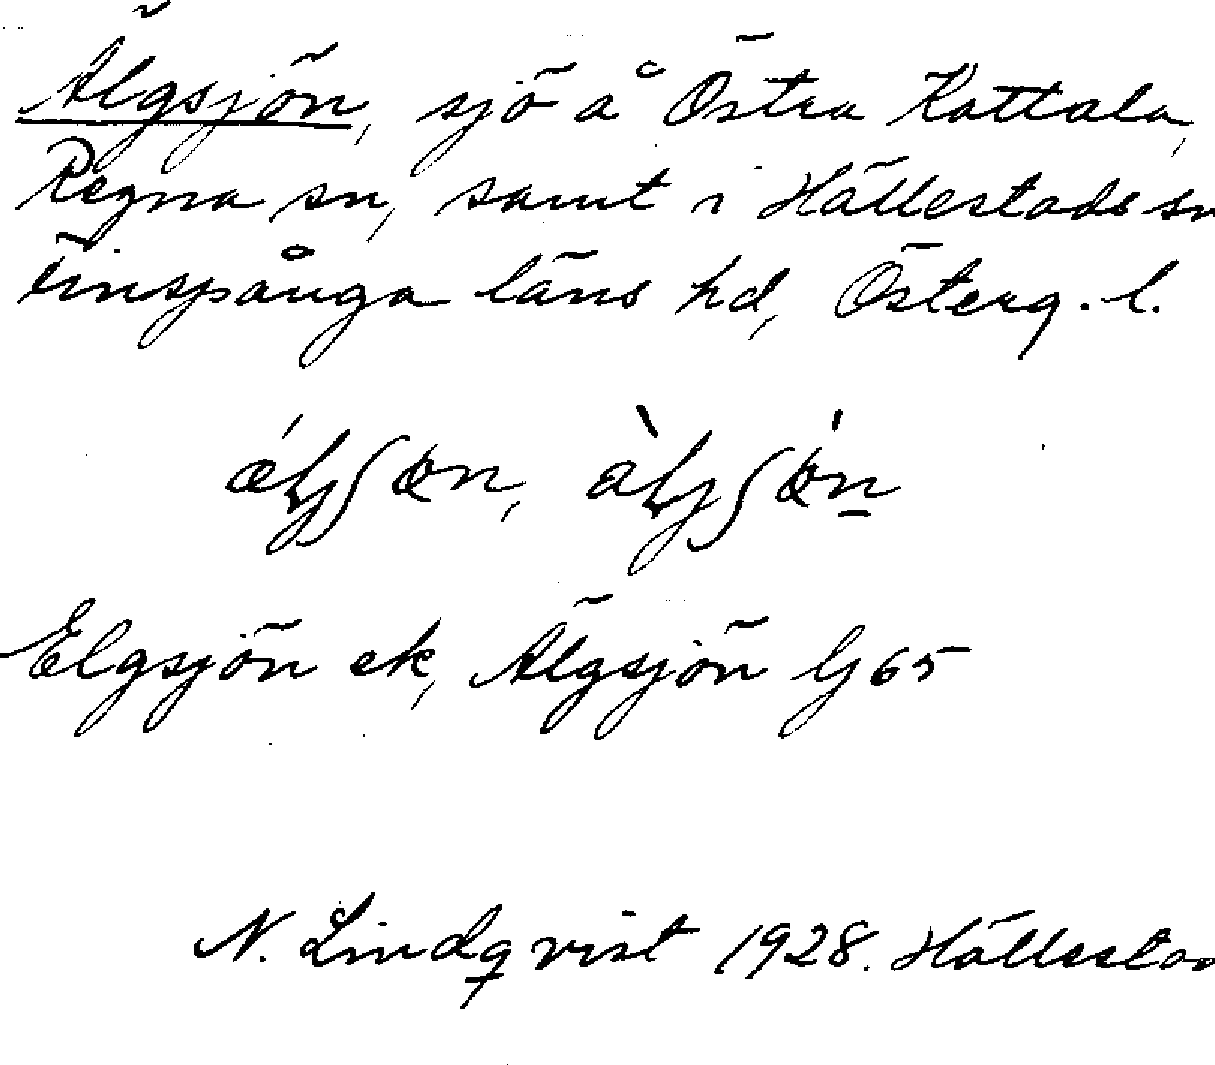 Älgsjön, sjö å Östra Kattala,
Regna sn, samt i Hällestads sn
Finspånga läns hd, Österg. l.
ǽljʃøn, àljʃǿn
Elgsjön ek, Älgsjön Gj 65
N. Lindqvist 1928. Hällestad